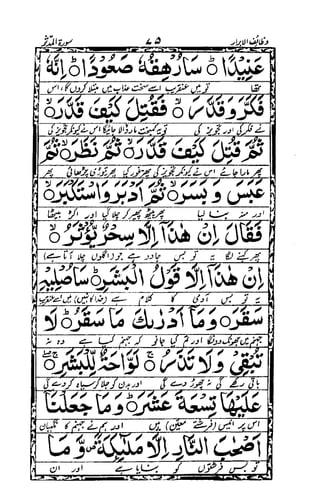 وظائف الابرار ٧٥ سورة المدثر
عَنِيْدًا ۞ سَاُرْهِقُهٗ صَعُوْدًا ۞ اِنَّهٗ
تھا تو میں عنقریب اسے سخت عذاب میں مبتلا کروں گا، اس
فَكَّرَ وَقَدَّرَ ۞ فَقُتِلَ كَيْفَ قَدَّرَ ۞
نے فکر کی اور تجویز کی تو یہ کمبخت مار ڈالا جائے گا اس نے کیونکر تجویز کی
ثُمَّ قُتِلَ كَيْفَ قَدَّرَ ۞ ثُمَّ نَظَرَ ۞ ثُمَّ
پھر مارا جائے اس نے کیونکر تجویز کی پھر غور کیا پھر تیوری چڑھائی پھر
عَبَسَ وَبَسَرَ ۞ ثُمَّ اَدْبَرَ وَاسْتَكْبَرَ ۞
اور منہ بنا لیا پھر پیٹھ پھیر کر چلا گیا اور اکڑ بیٹھا
فَقَالَ اِنْ هٰذَآ اِلَّا سِحْرٌ يُّؤْثَرُ ۞
پھر کہنے لگا یہ تو بس جادو ہے جو (اگلوں سے) چلا آتا ہے
اِنْ هٰذَآ اِلَّا قَوْلُ الْبَشَرِ ۞ سَاُصْلِيْهِ
یہ تو بس آدمی کا کلام ہے (خدا کا نہیں) میں اسے عنقریب
سَقَرَ ۞ وَمَآ اَدْرٰىكَ مَا سَقَرُ ۞ لَا
جہنم میں جھونک دونگا اور تم کیا جانو کہ جہنم کیا ہے وہ نہ
تُبْقِيْ وَلَا تَذَرُ ۞ لَوَّاحَةٌ لِّلْبَشَرِ ۞
باقی رکھے گی نہ چھوڑ دے گی اور بدن کو جلا کر سیاہ کر دے گی
عَلَيْهَا تِسْعَةَ عَشَرَ ۞ وَمَا جَعَلْنَآ
اس پر انیس (فرشتے معین) ہیں اور ہم نے جہنم کا نگہبان
اَصْحٰبَ النَّارِ اِلَّا مَلٰٓئِكَةً وَّمَا
تو بس فرشتوں کو بنایا ہے اور ان